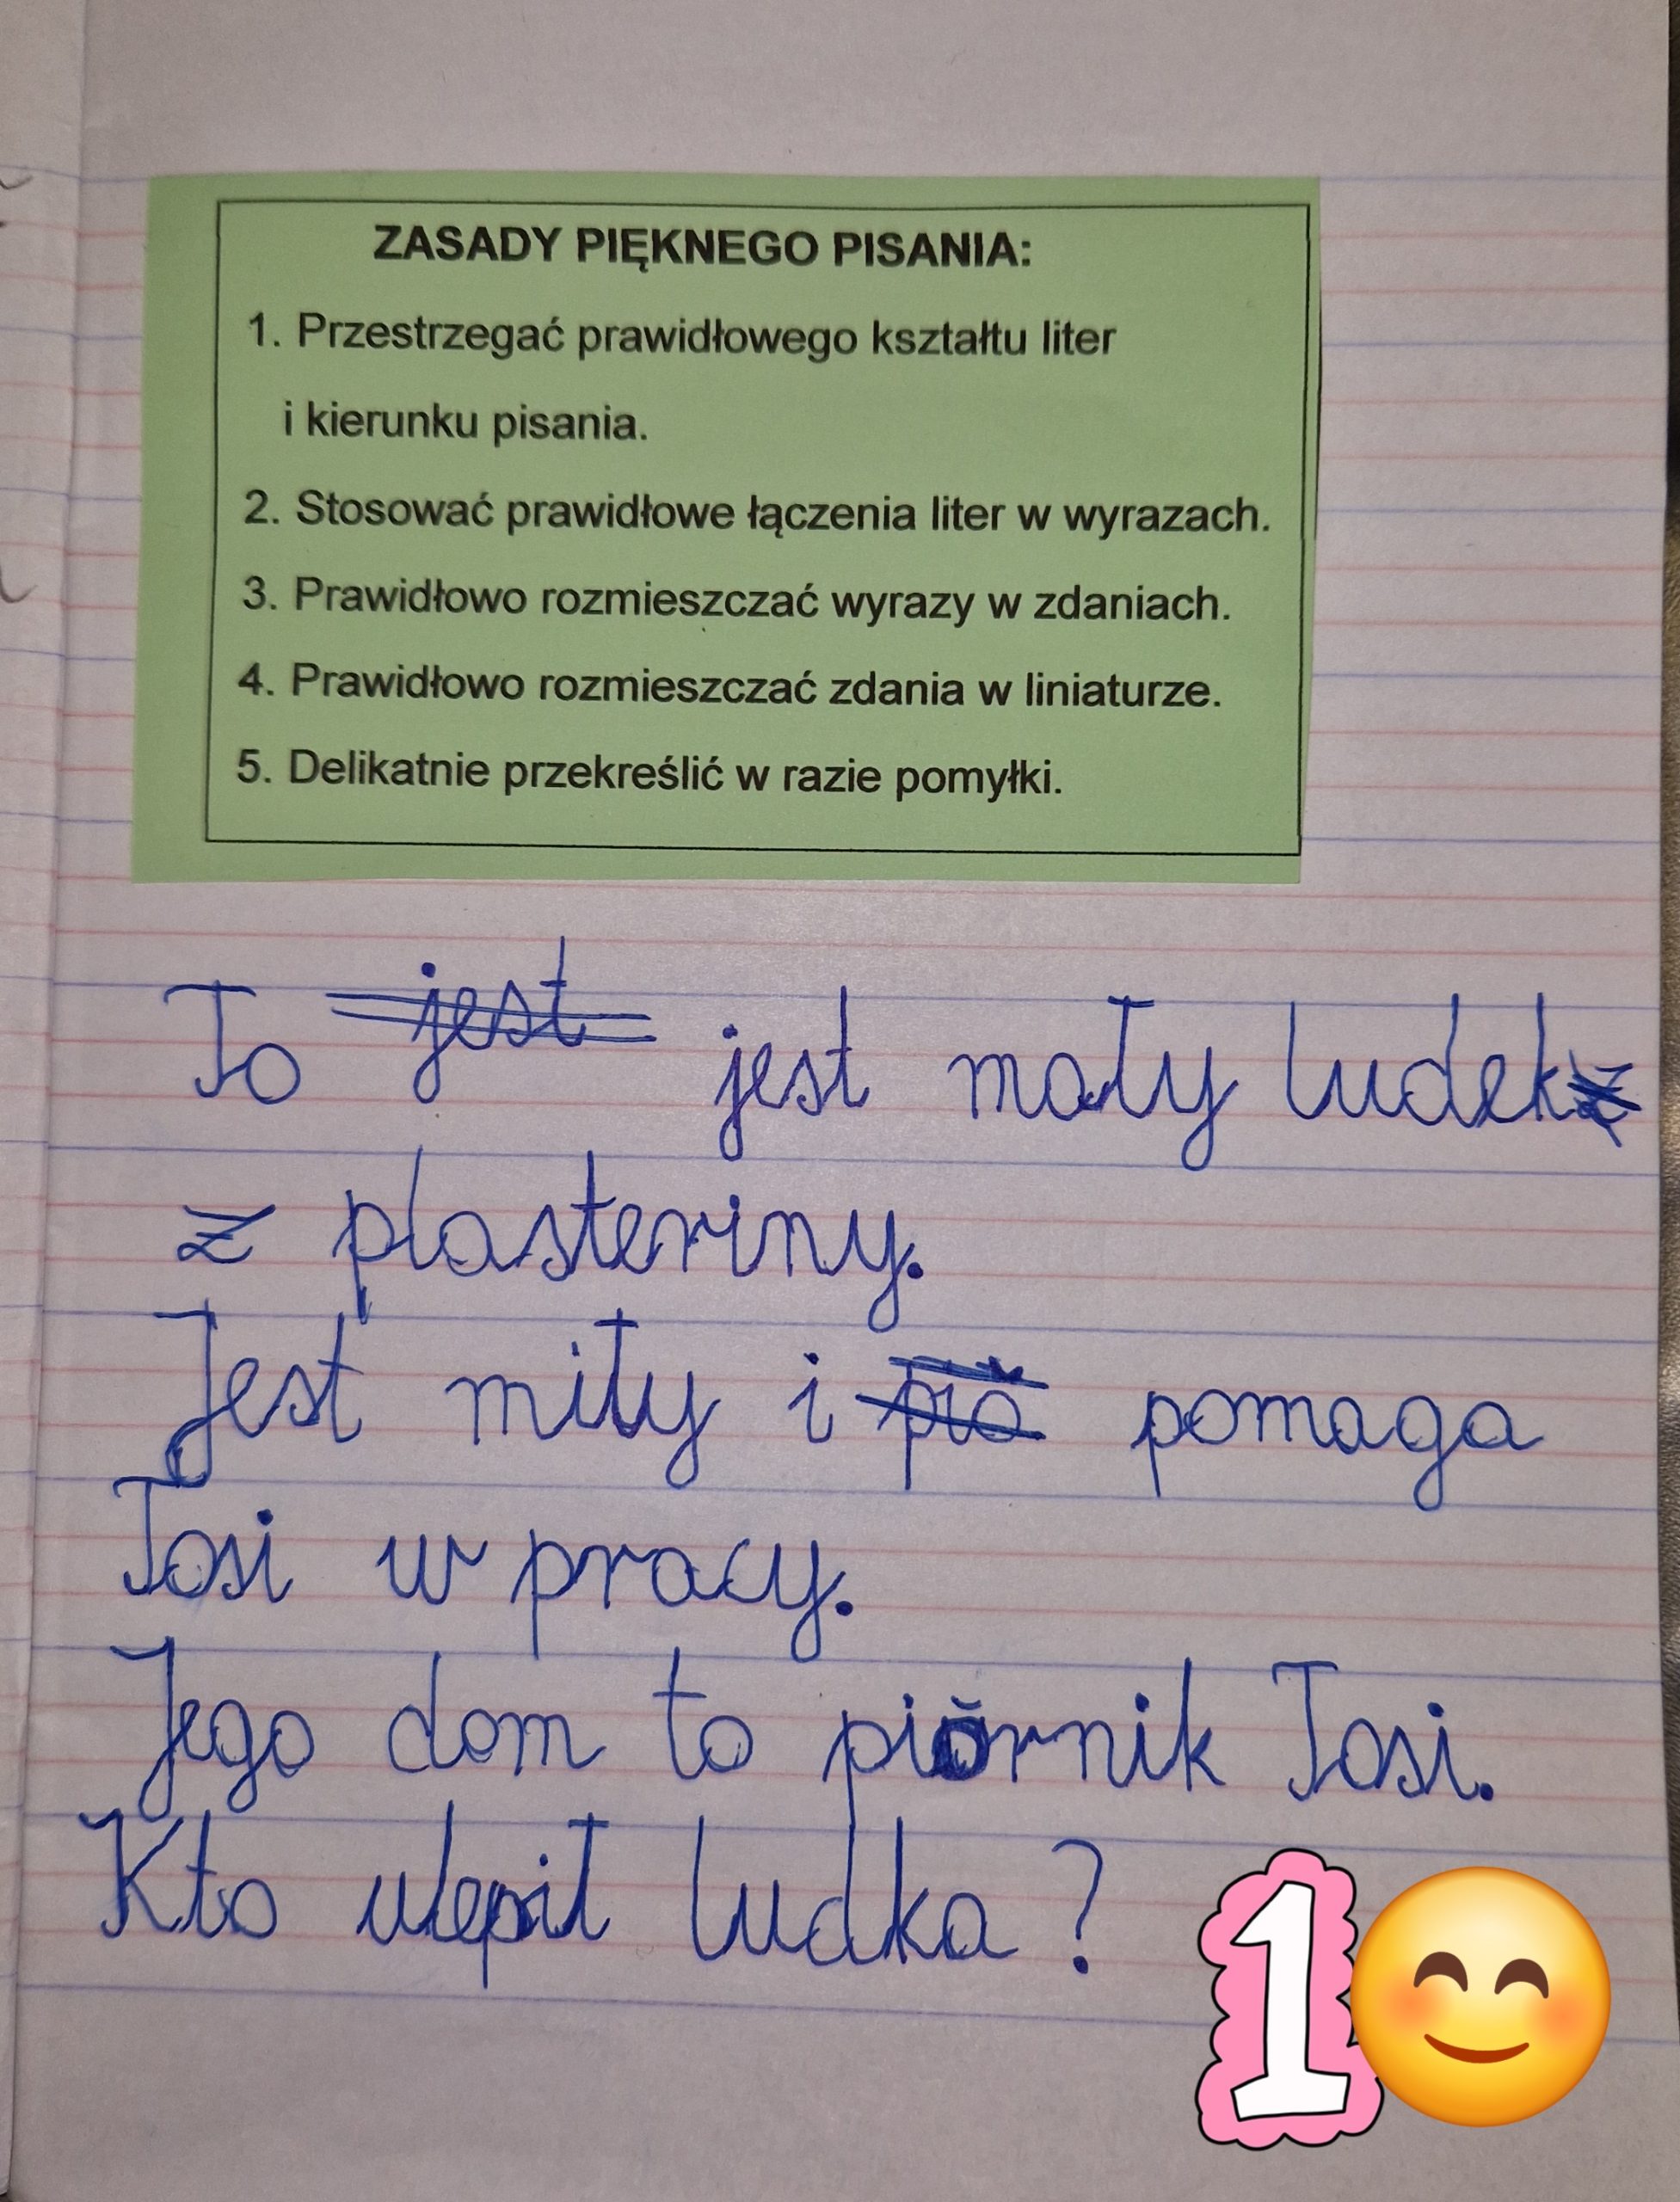 ZASADY PIĘKNEGO PISANIA:
1. Przestrzegać prawidłowego kształtu liter
i kierunku pisania.
2. Stosować prawidłowe łączenia liter w wyrazach.
3. Prawidłowo rozmieszczać wyrazy w zdaniach.
4. Prawidłowo rozmieszczać zdania w liniaturze.
5. Delikatnie przekreślić w razie pomyłki.
To jest jest mały ludek
z plasteriny.
Jest miły i pomaga
Tosi w pracy.
Jego dom to piórnik Tosi.
Kto ulepił ludka?
1